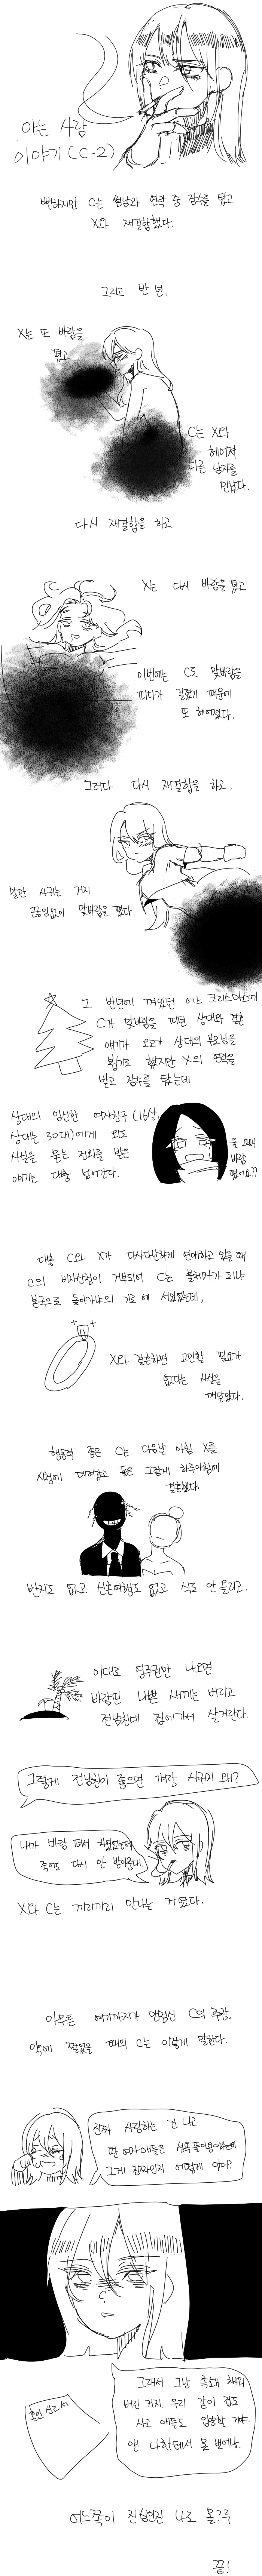 아는 사람
이야기(C-2)
뻔하지만 C는 썸남과 연락 중 잠수를 탔고
X와 재결합했다.
그리고 반 년,
X는 또 바람을
폈고
C는 X와
헤어져
다른 남자를
만났다.
다시 재결합을 하고
X는 다시 바람을 폈고
이번에는 C도 맞바람을
피다가 걸렸기 때문에
또 헤어졌다.
그러다 다시 재결합을 하고,
말만 사귀는 거지
끊임없이 맞바람을 폈다.
그 반년에 껴있던 어느 크리스마스에
C가 맞바람을 피던 상대와 결혼
얘기가 오고가 상대의 부모님을
뵙기로 했지만 X의 연락을
받고 잠수를 탔는데
상대의 임신한 여자친구(16살,
상대는 30대)에게 외도
사실을 묻는 전화를 받은
얘기는 대충 넘어간다.
바람
폈어요??
대충 C와 X가 다사다난하게 연애하고 있을 때
C의 비자신청이 거부되어 C는 불체자가 되냐
본국으로 돌아가냐의 기로에 서있었는데,
X와 결혼하면 고민할 필요가
없다는 사실을
깨달았다.
행동력 좋은 C는 다음날 아침 X를
시청에 데려갔고 둘은 그렇게 하루아침에
결혼했다.
반지도 없고 신혼여행도 없고 식도 안 올리고.
이대로 영주권만 나오면
바람핀 나쁜 새끼는 버리고
전남친네 집에 가서 살거란다.
그렇게 전남친이 좋으면 걔랑 사귀지 왜?
내가 바람 펴서 헤어졌는데
죽어도 다시 안 받아준대
X와 C는 끼리끼리 만나는 거였다.
아무튼 여기까지가 맨정신 C의 주장.
약에 쩔었을 때의 C는 이렇게 말한다.
진짜 사랑하는 건 나고
딴 여자애들은 성욕풀이용이라는데
그게 진짜인지 어떻게 알아?
그래서 그냥 족쇄 채워
버린 거지. 우리 같이 집도
사고 애들도 입양할 거야.
걘 나한테서 못 벗어나.
혼인 신고서
어느쪽이 진심인진 나도 몰?루
끝!